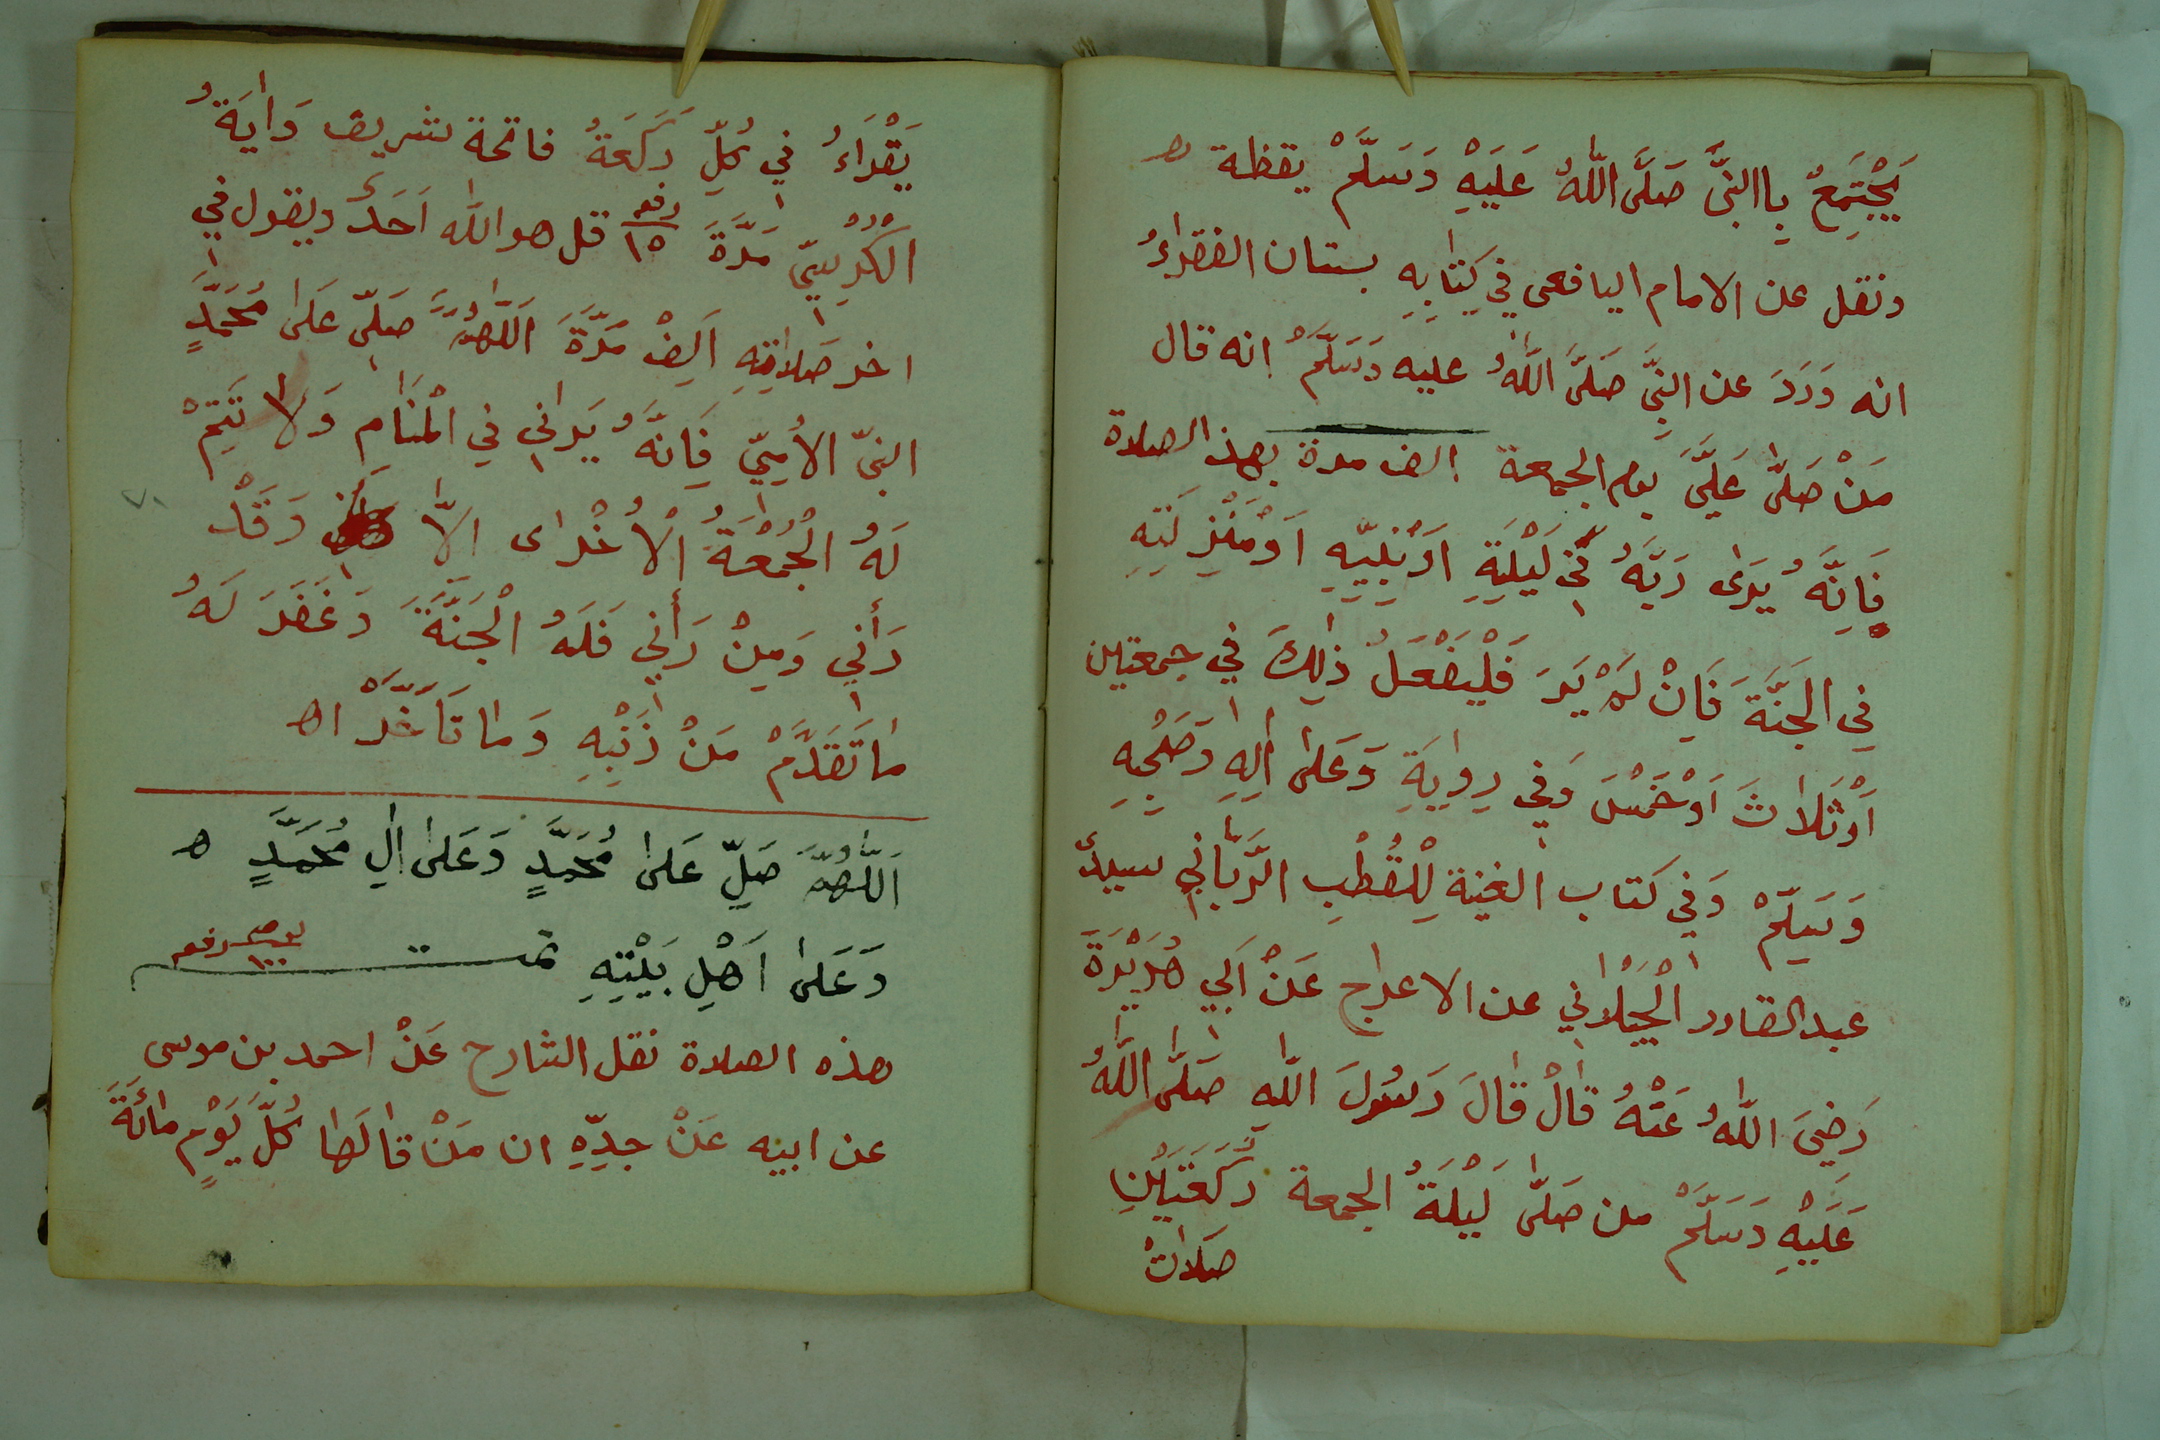 يَجْتَمِعُ بِاالنبَّى صَلَّى اللّٰهُ عَلَيْهِ وَسَلَّمْ يقظة ه
ونقل عن الامام اليافعى فِي كِتَابِهِ بستان الفقراءُ
انه وَرَدَ عن النبَّى صَلَّى اللّٰهُ عليه وَسَلَّمْ انه قال
مَنْ صَلَّى عَلَيَّ يوم الجمعة الف مرة بهذ الصلاة
فَاِنَّهُ يَرٰى رَبَّهُ فِي لَيْلَتِهِ اَوْ نَبِيِّهِ اَوْ مَنْزِلَتِهِ
فِي الجَنَّةَ فَاِنْ لَمْ يَرَ فَلْيَفْعَلُ ذٰلِكَ فِي جمعتين
اَوْ ثَلَاثَ اَوْ خَمْسَ وَفِي رِوايَةِ وَعَلىٰ اٰلِهِ وَصَحْبِهِ
وَسَلِّمْ وَفِي كتاب الغنية لِلْقُطْبِ الرَّبَّانِي سيدُ
عبد القادر الْجَيْلَانِي عن الاعرج عَنْ اَبِي هُرَيْرَةَ
رَضِىَ اللّٰهُ عَنْهُ قَالْ قَالَ رَسُولَ اللّٰهِ صَلَّى اللّٰهُ
عَلَيْهِ وَسَلَّمْ من صَلَّى لَيْلَةُ الجمعة رَكَعَتَيْنِ
صَلَاتْ
يَقْرَاءُ فِي كُلِّ رَكَعَةُ فاتحة شريف وَاٰيَةُ
الْكُرْسِيِّ مَرَّةَ ١٥ رفعه قل هو الله اَحَدٌ ويقول فِي
اخر صَلَاتِهِ اَلِفْ مَرَّةَ اَللّٰهُمَّ صَلِّى عَلىٰ مُحَمَّدٍ
النبىّ الاُمِيّ فَاِنَّهُ يَرَانِي فِي الْمَنَامِ وَلَا تَتِمْ
لَهُ الْجُمْعَةُ الْاُخْرٰى الَّا وَقَدْ
رَأَنِي وَمِنْ رَأَنِي فَلَهُ الْجَنَّةَ وَغَفَرَ لَهُ
مَا تَقَدَّمْ مَنْ ذَنْبِهِ وَمَا تَاَخَّرْ اه
اَللّٰهُمَّ صَلِّ عَلىٰ مُحَمَّدٍ وَعَلىٰ اٰلِ مُحَمَّدٍ ه
وَعَلىٰ اَهْلِ بَيْتِهِ تمت ١٠٠
هذه الصلاة نقل الشارح عَنْ احمد بن موسى
عن ابيه عَنْ جدِّهِ ان مَنْ قَالَهَا كُلَّ يَوْمٍ مائَةَ